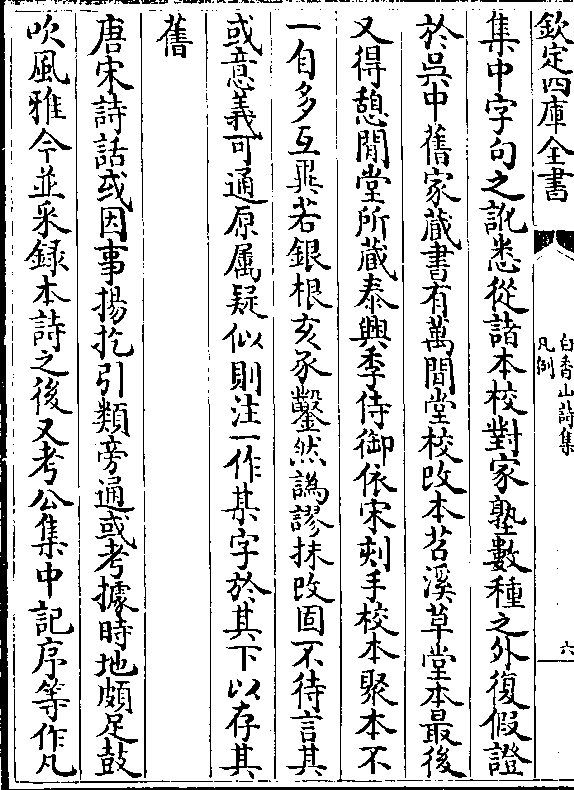 欽定四庫全書
白香山詩集
凡例
六
集中字句之訛悉從諸本校對家塾數種之外復假證
於吳中舊家藏書有萬間堂校改本苕溪草堂本最後
又得憩閒堂所藏泰興季侍御依宋刻手校本聚本不
一自多互異若銀根亥豕鑿然譌謬抹改固不待言其
或意義可通原属疑似則注一作某字於其下以存其
舊
唐宋詩話或因事揚扢引類旁通或考據時地頗足鼓
吹風雅今並采録本詩之後又考公集中記序等作凡